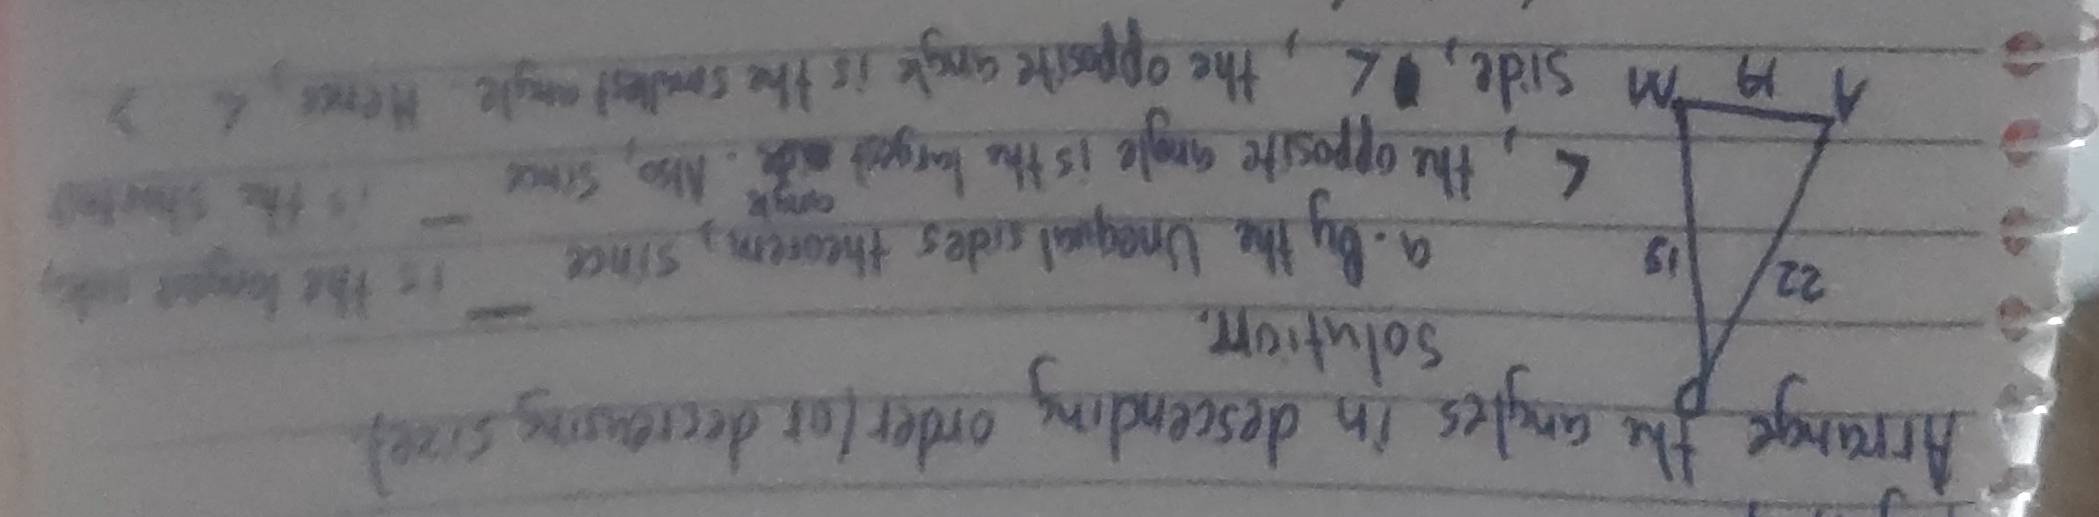 Arrange the angles in descending order (or decreasing size)
P
Solution.
22
a. By the Unequal sides theorem, since _ is the longer side,
∠ , the opposite angle is the largest angle. Also, since _ is the shortest
M
side, ∠ , the opposite angle is the smallest angle. Hence, ∠ >